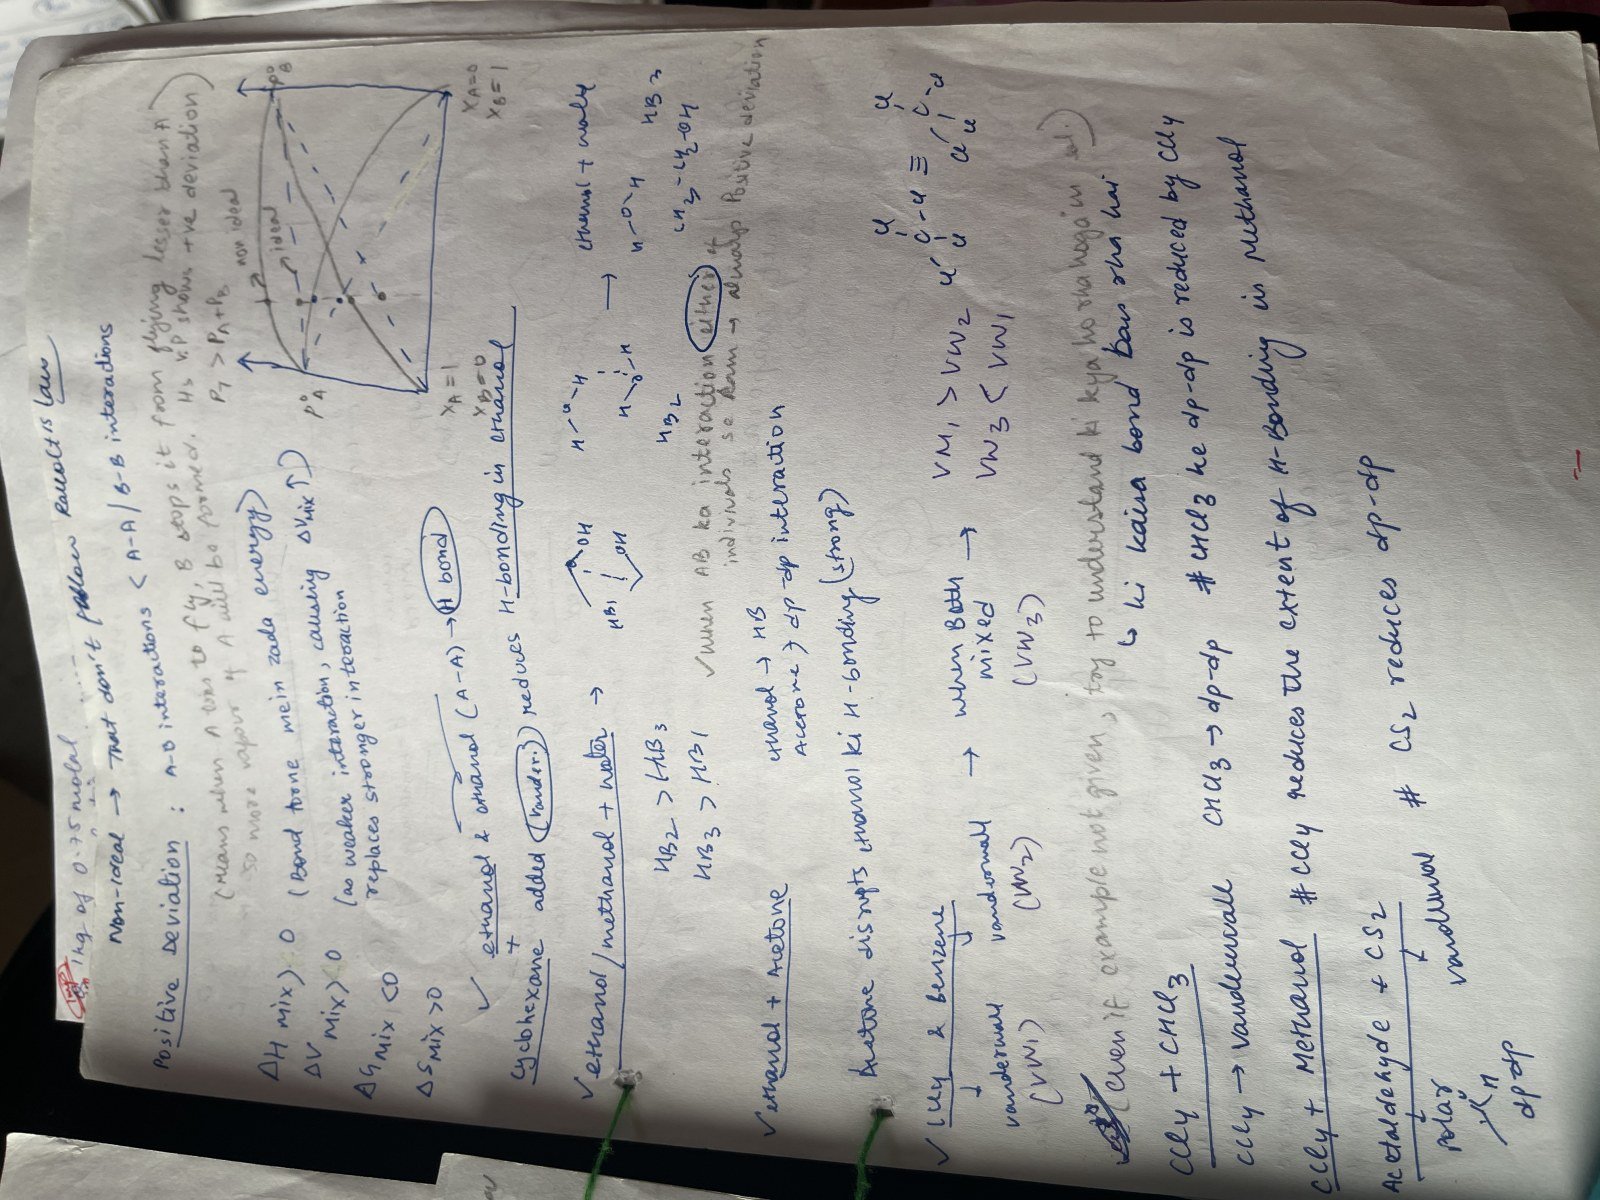 1 kg of 0.75 molal
Non-ideal → That don't follow Raoult's law
Positive Deviation : A-B interactions < A-A / B-B interactions
(Means when A tries to fly, B stops it from flying lesser than A)
so more vapour of A will be formed. Hs V.P shows +ve deviation)
PT > PA + PB
ΔH mix > 0 (Bond torne mein zada energy)
ΔV mix > 0 (as weaker interaction, causing ΔVmix ↑)
replaces stronger interaction
ΔG mix < 0
ΔS mix > 0
P°A
P°B
non ideal
ideal
XA = 1
XB = 0
XA = 0
XB = 1
✓ ethanol & ethanol (A-A) → H bond
+
cyclohexane added (vander.) reduces H-bonding in ethanol
✓ ethanol/methanol + water →
OH
HB1
OH
H-O-H
H-O-H
HB2
→ ethanol + water
H-O-H HB3
CH3-CH2-OH
HB2 > HB3
HB3 > HB1
✓ when AB ka interaction either of
individuals se kam → always Positive deviation
✓ ethanol + Acetone
ethanol → HB
Acetone → dp-dp interaction
Acetone disrupts ethanol ki H-bonding (strong)
✓ CCl4 & benzene → when Both mixed →
vanderwall (VW1)
vanderwall (VW2)
(VW3)
VW1 > VW2
VW3 < VW1
Cl
Cl C-Cl ≡ C-Cl
Cl
Cl Cl
(Even if example not given, try to understand ki kya ho rha hoga in sol.)
↳ ki kaisa bond ban rha hai
CCl4 + CHCl3
CCl4 → vanderwall CHCl3 → dp-dp # CHCl3 ke dp-dp is reduced by CCl4
CCl4 + Methanol # CCl4 reduces the extent of H-Bonding in Methanol
Acetaldehyde + CS2 # CS2 reduces dp-dp
polar
vanderwal
O
H
dp-dp